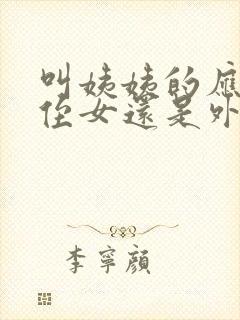 叫姨姨的應
侄女還是外
李寧顏